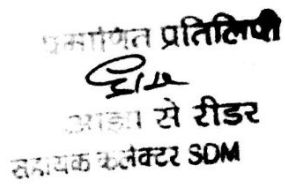 प्रमाणित प्रतिलिपी
आज्ञा से रीडर
सहायक कलेक्टर SDM